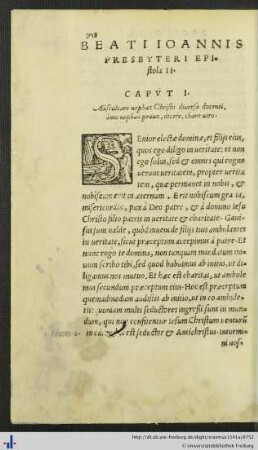 718
BEATI IOANNIS
PRESBYTERI EPI-
stola II.
CAPVT I.
Auscultare nephas Christi diversa docenti,
SEnior electæ dominæ, et filijs eius,
quos ego diligo in veritate: et non
ego solus, sed & omnes qui cogno
uerunt ueritatem, propter verita
tem, quæ permanet in nobis, &
nobiscum erit in æternum. Erit nobiscum gra ia,
misericordia, pax à Deo patre, & à domino iesu
Christo filio patris in veritate & charitate. Gaui-
sus sum ualde, quòd inueni de filijs tuis ambulantes
in ueritate, sicut præceptum accepimus à patre. Et
nunc rogo te domina, non tanquam mandatum no-
uum scribens tibi, sed quod habuimus ab initio, ut di-
ligamus nos mutuò. Et hæc est charitas, ut ambule
mus secundum præceptum eius. Hoc est præceptum
quemadmodum audistis ab initio, ut in eo ambule-
tis: quoniam multi seductores ingressi sunt in mun-
dum, qui non confitentur iesum Christum uenturū
in ca est seductor & Antichristus. intuemi
ni uos
http://dl.ub.uni-freiburg.de/diglit/erasmus1541a/0752
© Universitätsbibliothek Freiburg